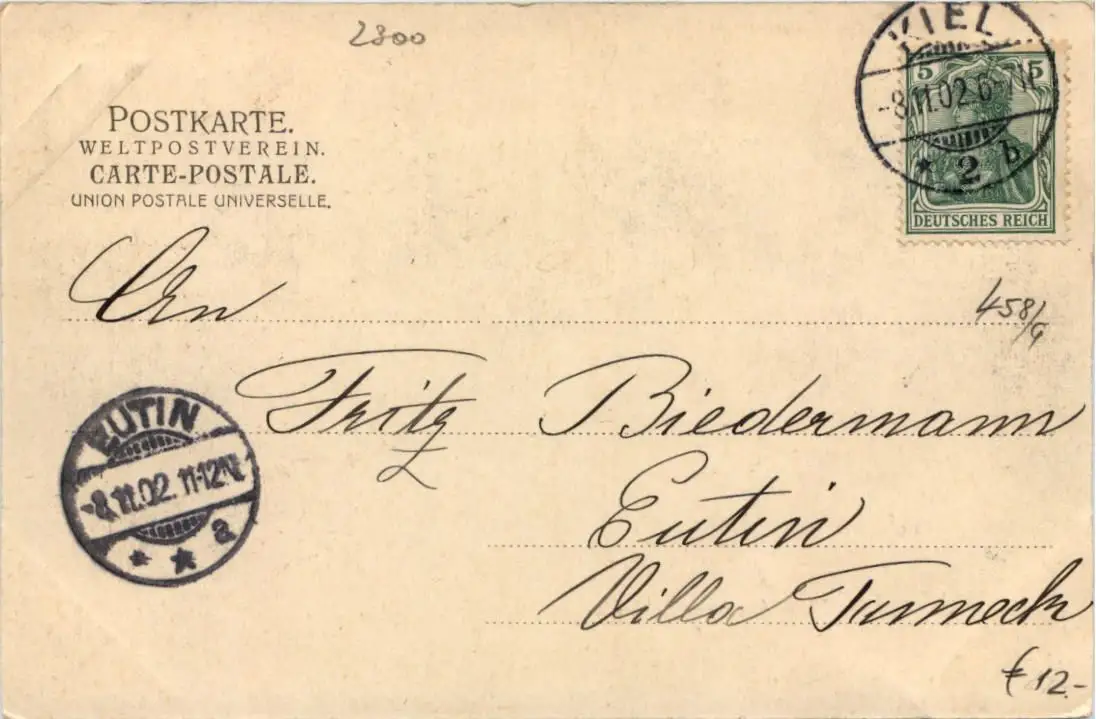 2800
KIEL
-8.11.02.6-7N.
* 2 b
5 5
DEUTSCHES REICH
POSTKARTE.
WELTPOSTVEREIN.
CARTE-POSTALE.
UNION POSTALE UNIVERSELLE.
An
458/G
Fritz Biedermann
EUTIN
-8.11.02. 11-12N.
* * a
Eutin
Villa
€ 12.-